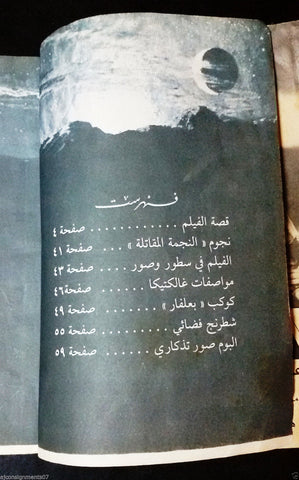 فهرست
قصة الفيلم . . . . . . . . . . . . صفحة ٤
نجوم « النجمة المقاتلة » . . . صفحة ٤١
الفيلم في سطور وصور . . . . صفحة ٤٣
مواصفات غالكتيكا . . . . . . صفحة ٤٦
كوكب « بعلفار » . . . . . . . صفحة ٤٩
شطرنج فضائي . . . . . . . . . صفحة ٥٥
البوم صور تذكاري . . . . . . صفحة ٥٩
ajconsignments07